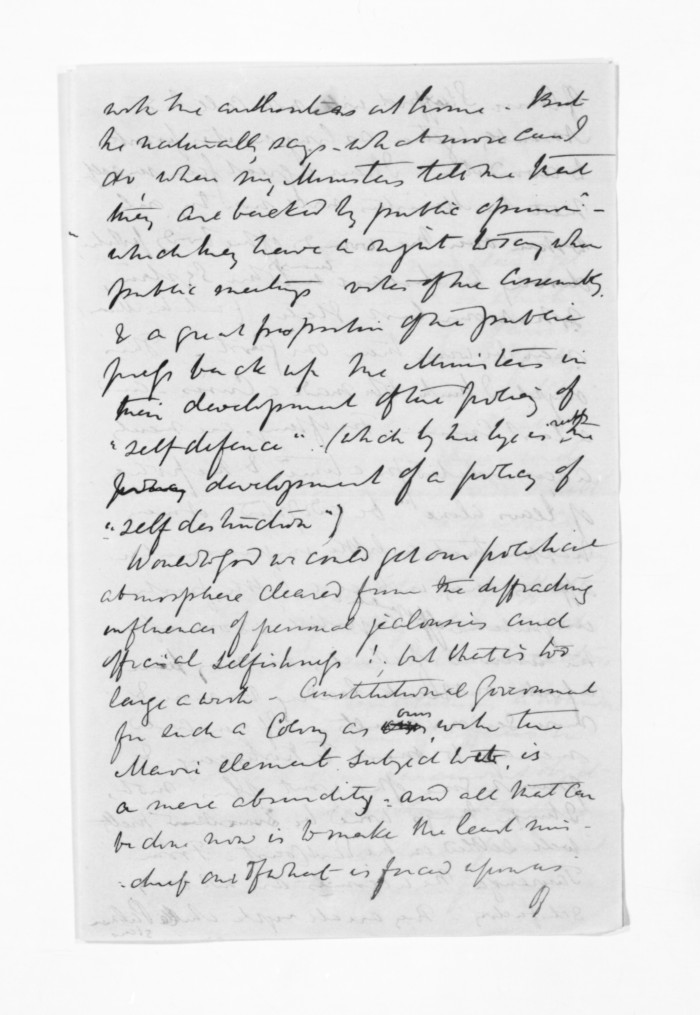 with the authorities at home. But
he naturally says - what more can I
do when my Ministers tell me that
they are backed by public opinion -
which they have a right to say when
public meetings votes of the Assembly,
& a great proportion of the public
press back up the Ministers in
their development of the policy of
"self defence". (which by the bye is really the
policy development of a policy of
"self destruction")
Would to God we could get our political
atmosphere cleared from the diffracting
influences of personal jealousies and
official selfishness! but that is too
large a work - Constitutional Government
for such a Colony as ours, with the
Maori element subject to it, is
a mere absurdity - and all that can
be done now is to make the least mis-
-chief out of what is forced upon us.